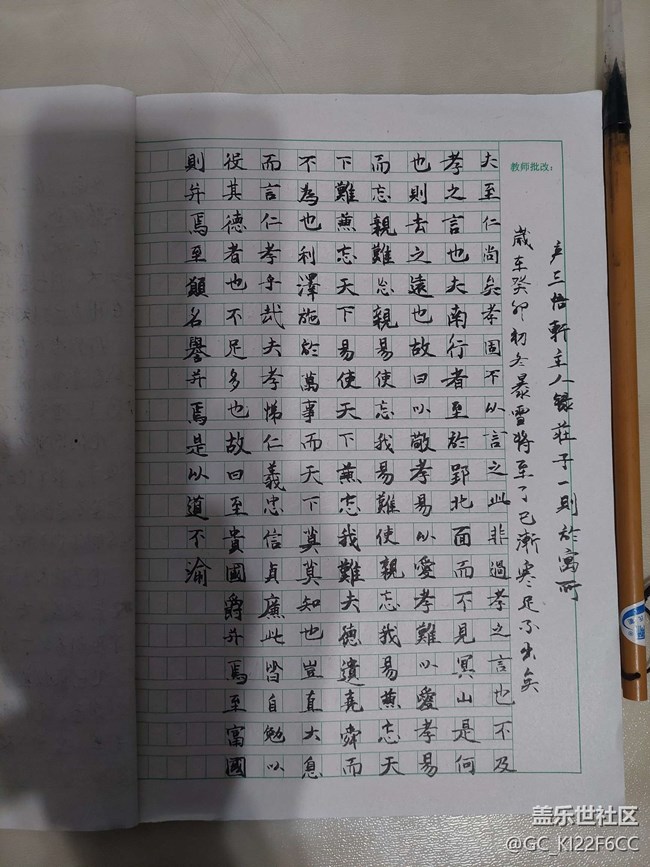 教师批改：
三悟軒主人録莊子一則於寓所
歲在癸卯初冬暴雪將至了已漸寒足不出矣
夫至仁尚矣孝固不以言之此非過孝之言也不及
孝之言也夫南行者至於郢北面而不見冥山是何
也則去之遠也故曰以敬孝易以愛孝難以愛孝易
而忘親難忘親易使忘我易難使親忘我易兼忘天
下難兼忘天下易使天下兼忘我難夫德遺堯舜而
不為也利澤施於萬事而天下莫莫知也豈直大息
而言仁孝乎哉夫孝悌仁義忠信貞廉此皆自勉以
役其德者也不足多也故曰至貴國爵并焉至富國
則并焉至願名譽并焉是以道不渝
盖乐世社区
@GC_KI22F6CC